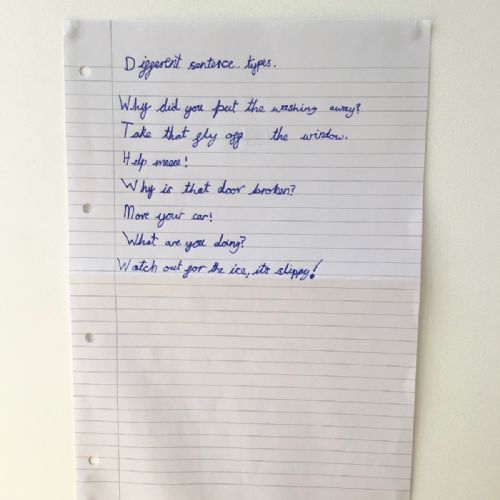 Different sentence types.
Why did you put the washing away?
Take that fly off the window.
Help meeee!
Why is that door broken?
Move your car!
What are you doing?
Watch out for the ice, its slippy!